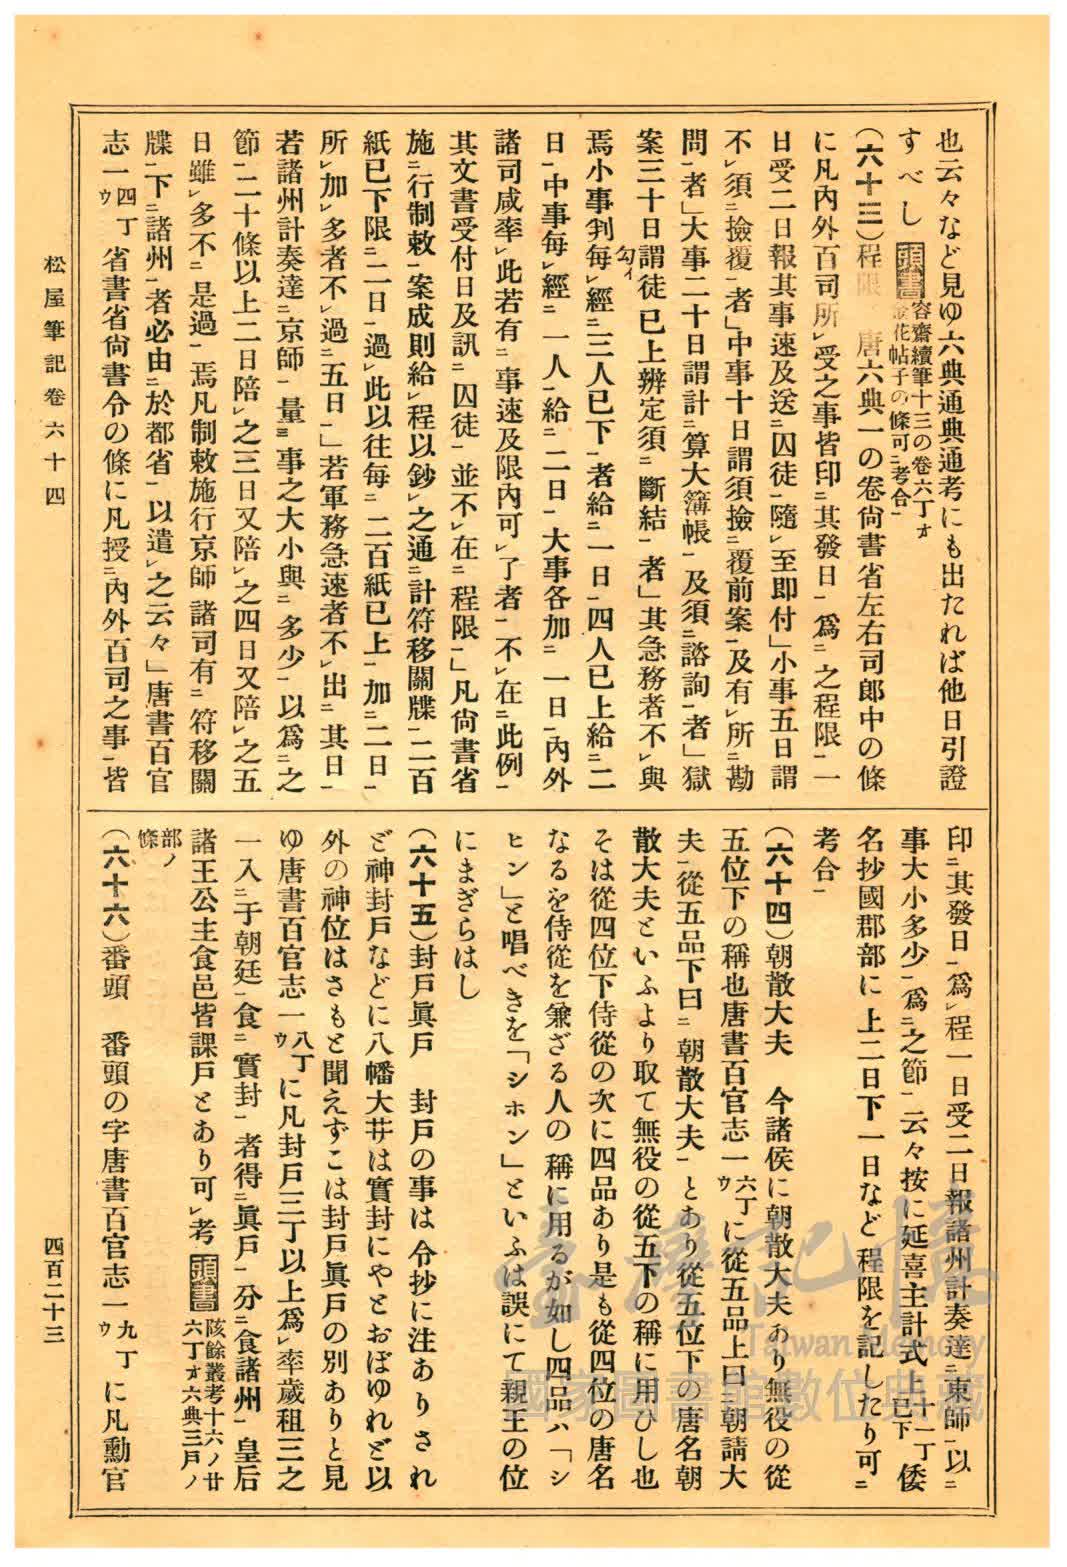 也云々など見ゆ六典通典通考にも出たれば他日引證
すべし 頭書 容齋續筆十三の卷六丁オ
金花帖子の條可ニ考合一
(六十三)程限 唐六典一の卷尙書省左右司郎中の條
に凡內外百司所レ受之事皆印ニ其發日一爲ニ之程限一一
日受二日報其事速及送ニ囚徒一隨レ至卽付」小事五日謂
不レ須ニ撿覆一者」中事十日謂須撿ニ覆前案一及有レ所ニ勘
問一者」大事二十日謂計ニ算大簿帳一及須ニ諮詢一者」獄
案三十日謂徒已上辨定須ニ斷結一者」其急務者不レ與
勾イ
焉小事判每レ經ニ三人已下一者給ニ一日一四人已上給ニ二
日一中事每レ經ニ一人一給ニ二日一大事各加ニ一日一內外
諸司咸率レ此若有ニ事速及限內可レ了者一不レ在ニ此例一
其文書受付日及訊ニ囚徒一並不レ在ニ程限一」凡尙書省
施ニ行制敕一案成則給レ程以鈔レ之通ニ計符移關牒一二百
紙已下限ニ二日一過レ此以往每ニ二百紙已上一加ニ二日一
所レ加レ多者不レ過ニ五日一」若軍務急速者不レ出ニ其日一
若諸州計奏達ニ京師一量三事之大小與ニ多少一以爲ニ之
節一二十條以上二日陪レ之三日又陪レ之四日又陪レ之五
日雖レ多不ニ是過一焉凡制敕施行京師諸司有ニ符移關
牒一下ニ諸州一者必由ニ於都省一以遣レ之云々」唐書百官
志一四丁ウ省書省尙書令の條に凡授ニ內外百司之事一皆
印ニ其發日一爲レ程一日受二日報諸州計奏達ニ東師一以ニ
事大小多少一爲ニ之節一云々按に延喜主計式上十一丁已下倭
名抄國郡部に上二日下一日など程限を記したり可ニ
考合一
(六十四)朝散大夫 今諸侯に朝散大夫あり無役の從
五位下の稱也唐書百官志一六丁ウに從五品上曰ニ朝請大
夫一從五品下曰ニ朝散大夫一とあり從五位下の唐名朝
散大夫といふより取て無役の從五下の稱に用ひし也
そは從四位下侍從の次に四品あり是も從四位の唐名
なるを侍從を兼ざる人の稱に用るが如し四品ハ「シ
ヒン」と唱べきを「シホン」といふは誤にて親王の位
にまぎらはし
(六十五)封戸眞戸 封戸の事は令抄に注ありされ
ど神封戸などに八幡大井は實封にやとおぼゆれど以
外の神位はさもと聞えずこは封戸眞戸の別ありと見
ゆ唐書百官志一八丁ウに凡封戸三丁以上爲レ率歲租三之
一入ニ于朝廷一食ニ實封一者得ニ眞戸一分ニ食諸州一皇后
諸王公主食邑皆課戸とあり可レ考 頭書 陔餘叢考十六ノ廿
六丁オ六典三戸ノ
部ノ
條
(六十六)番頭 番頭の字唐書百官志一九丁ウに凡勳官
松屋筆記卷六十四
四百二十三
臺灣記憶
Taiwan Memory
國家圖書館數位典藏